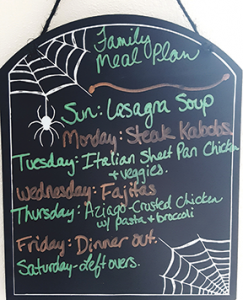 Family
Meal Plan
Sun: Losagna Soup
Monday: Steak Kabobs
Tuesday: Italian Sheet Pan Chicken
+ veggies.
Wednesday: Fajitas
Thursday: Aziago-Crusted Chicken
w/ pasta + broccoli
Friday: Dinner out.
Saturday-leftovers.